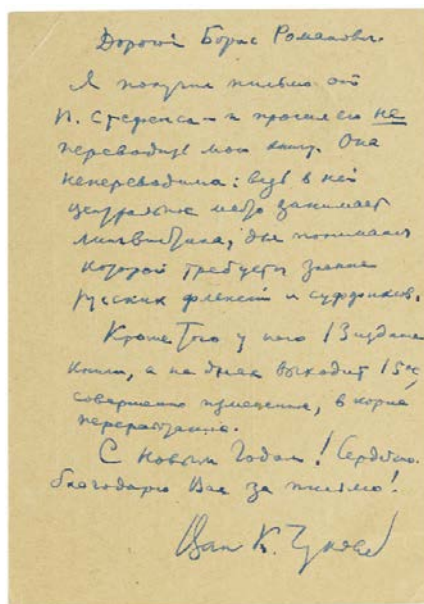 Дорогой Борис Романович.
Я получил письмо от
П. Стефенса — и просил его не
переводить мою книгу. Она
непереводима: ведь в ней
центральное место занимает
лингвистика, для понимания
которой требуется знание
русских флексий и суффиксов.
Кроме того у него 13 издание
книги, а на днях выходит 15ое,
совершенно измененное, в корне
переработанное.
С Новым Годом! Сердечно
благодарю Вас за письмо!
Ваш К. Чуковский